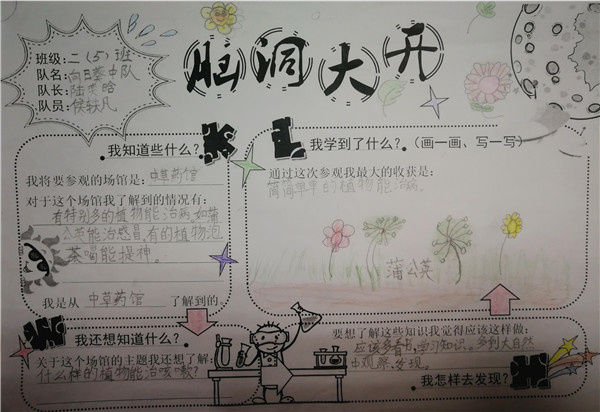 脑洞大开
班级:二(5)班
队名:向日葵中队
队长:陆
队员:侯轶凡
我知道些什么?
我将要参观的场馆是:中草药馆
对于这个场馆我了解到的情况有:
有特别多的植物能治病,如蒲
公英能治感冒,有的植物泡
茶喝能提神。
我是从 中草药馆 了解到的
我学到了什么?(画一画、写一写)
通过这次参观我最大的收获是:
简简单单的植物能治病。
蒲公英
我还想知道什么?
关于这个场馆的主题我还想了解:
什么样的植物能治咳嗽?
要想了解这些知识我觉得应该这样做:
应该多看书,学习知识。多到大自然
中观察、发现。
我怎样去发现?